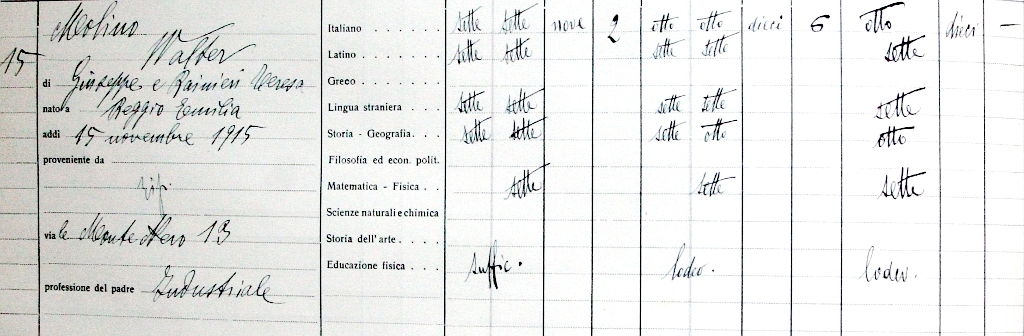 15
Molino
Walter
di Giuseppe e Rainieri Teresa
nato a Reggio Emilia
addì 15 novembre 1915
proveniente da
via le Monte Nero 13
professione del padre Industriale
Italiano . . . . . . . sette sette nove 2 otto otto dieci 6 otto dieci —
Latino . . . . . . . . sette sette sette sette sette
Greco . . . . . . . .
Lingua straniera . . . . sette sette sette sette sette
Storia - Geografia. . . sette sette sette otto otto
Filosofia ed econ. polit.
Matematica - Fisica . . sette sette sette
Scienze naturali e chimica
Storia dell'arte . . . .
Educazione fisica . . . suffic. lodev. lodev.